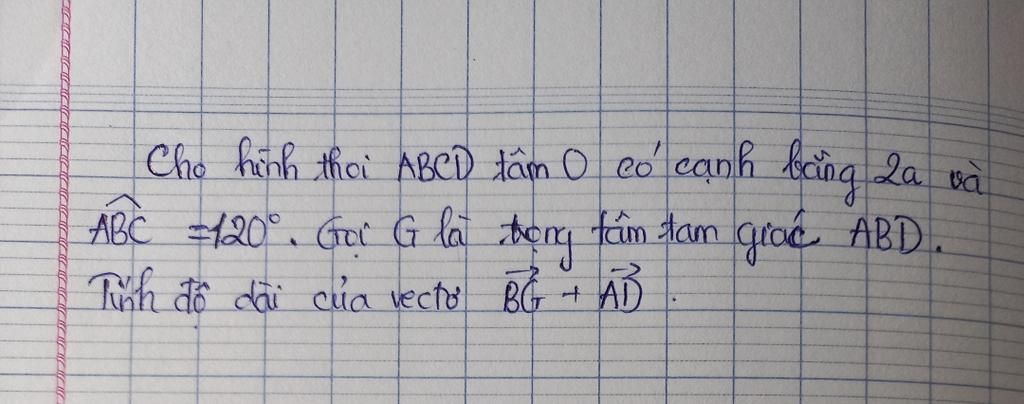 Cho hình thoi ABCD tâm O có cạnh bằng 2a và
$\widehat{ABC}$ = 120°. Gọi G là trọng tâm tam giác ABD.
Tính độ dài của vectơ $\overrightarrow{BG}$ + $\overrightarrow{AD}$.